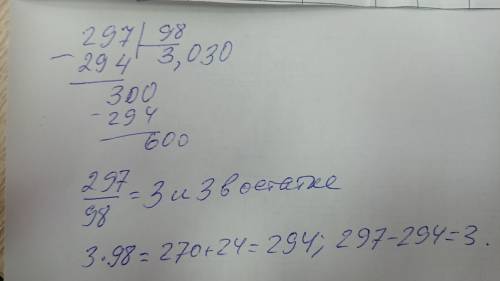 297 | 98
- 294 3,030
300
- 294
600
297/98 = 3 и 3 в остатке
3·98 = 270+24 = 294; 297-294=3.